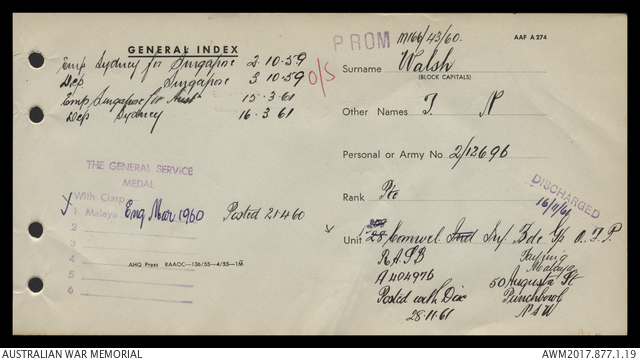 GENERAL INDEX
Emp Sydney for Singapore 2.10.59
Dep Singapore 3.10.59
O/S
Emp Singapore for Aust 15.3.61
Dep Sydney 16.3.61
THE GENERAL SERVICE
MEDAL
With Clasp
1 Malaya Eng Mar 1960 Posted 21.4.60
2
3
4
5
6
AHQ Press RAAOC—136/55—4/55—1M
PROM M166/43/60. AAF A 274
Surname Walsh
(BLOCK CAPITALS)
Other Names J. N
Personal or Army No. 2/12696
DISCHARGED
Rank Pte
Unit 28 Comwel Ind Inf Bde Gp O.F.P.
R.A.S.B Taiping
Malaya
A404976 50 Augusta St
Posted with Disc Punchbowl
28.11.61 NSW
AUSTRALIAN WAR MEMORIAL AWM2017.877.1.19